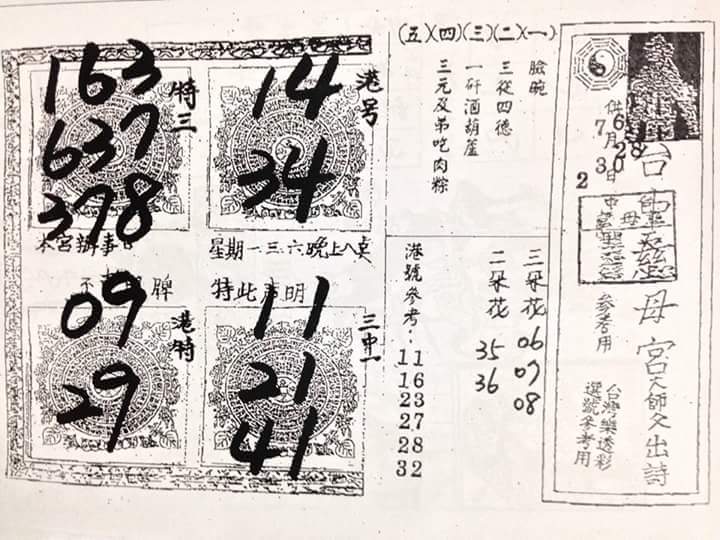 台
母宮大師父出詩
供
7月30日
6
28
2
參考用
台灣樂透彩
選號參考用
(五)(四)(三)(二)(一)
臉腕
三從四德
一矸酒葫蘆
三元及弟吃肉粽
三朵花 06 07 08
二朵花 35 36
港號參考:
11
16
23
27
28
32
港号
14
34
特三
163
637
378
星期一三六晚上八点
本宮辦事
特此声明
牌
三中一
11
21
41
港特
09
29